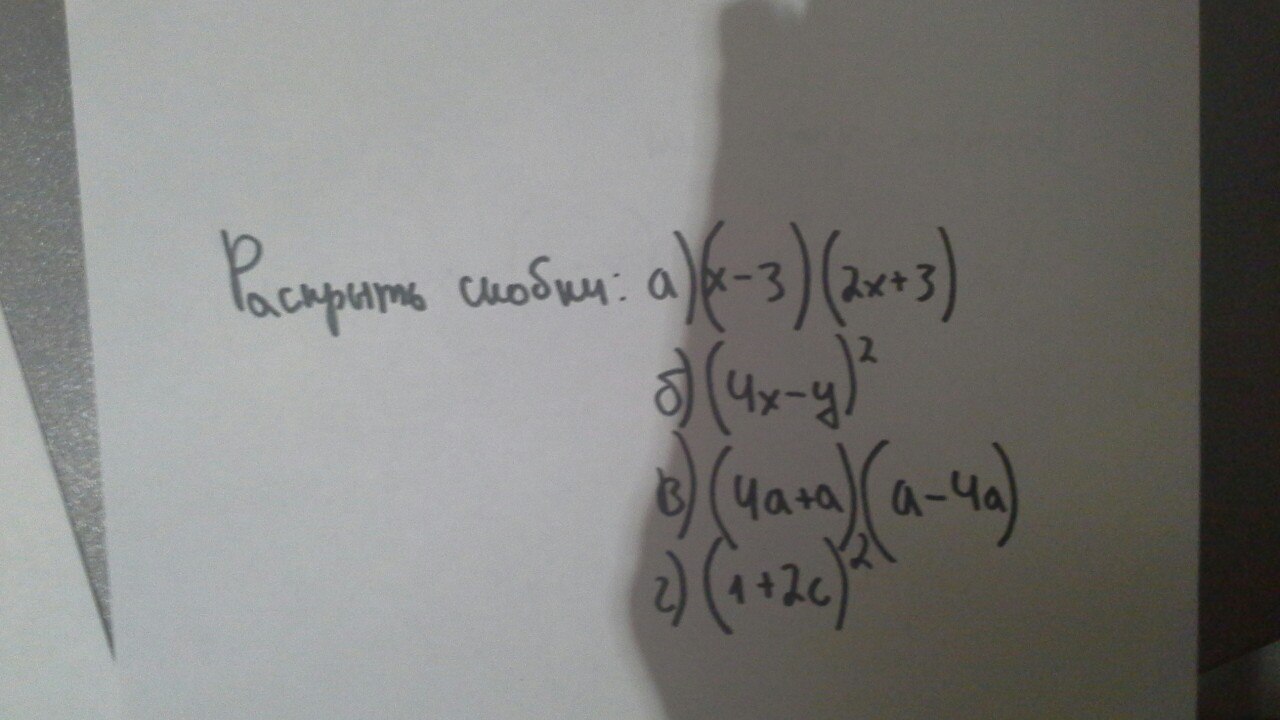 Раскрыть скобки: а) (x-3)(2x+3)
б) (4x-y)²
в) (4a+a)(a-4a)
г) (1+2c)²